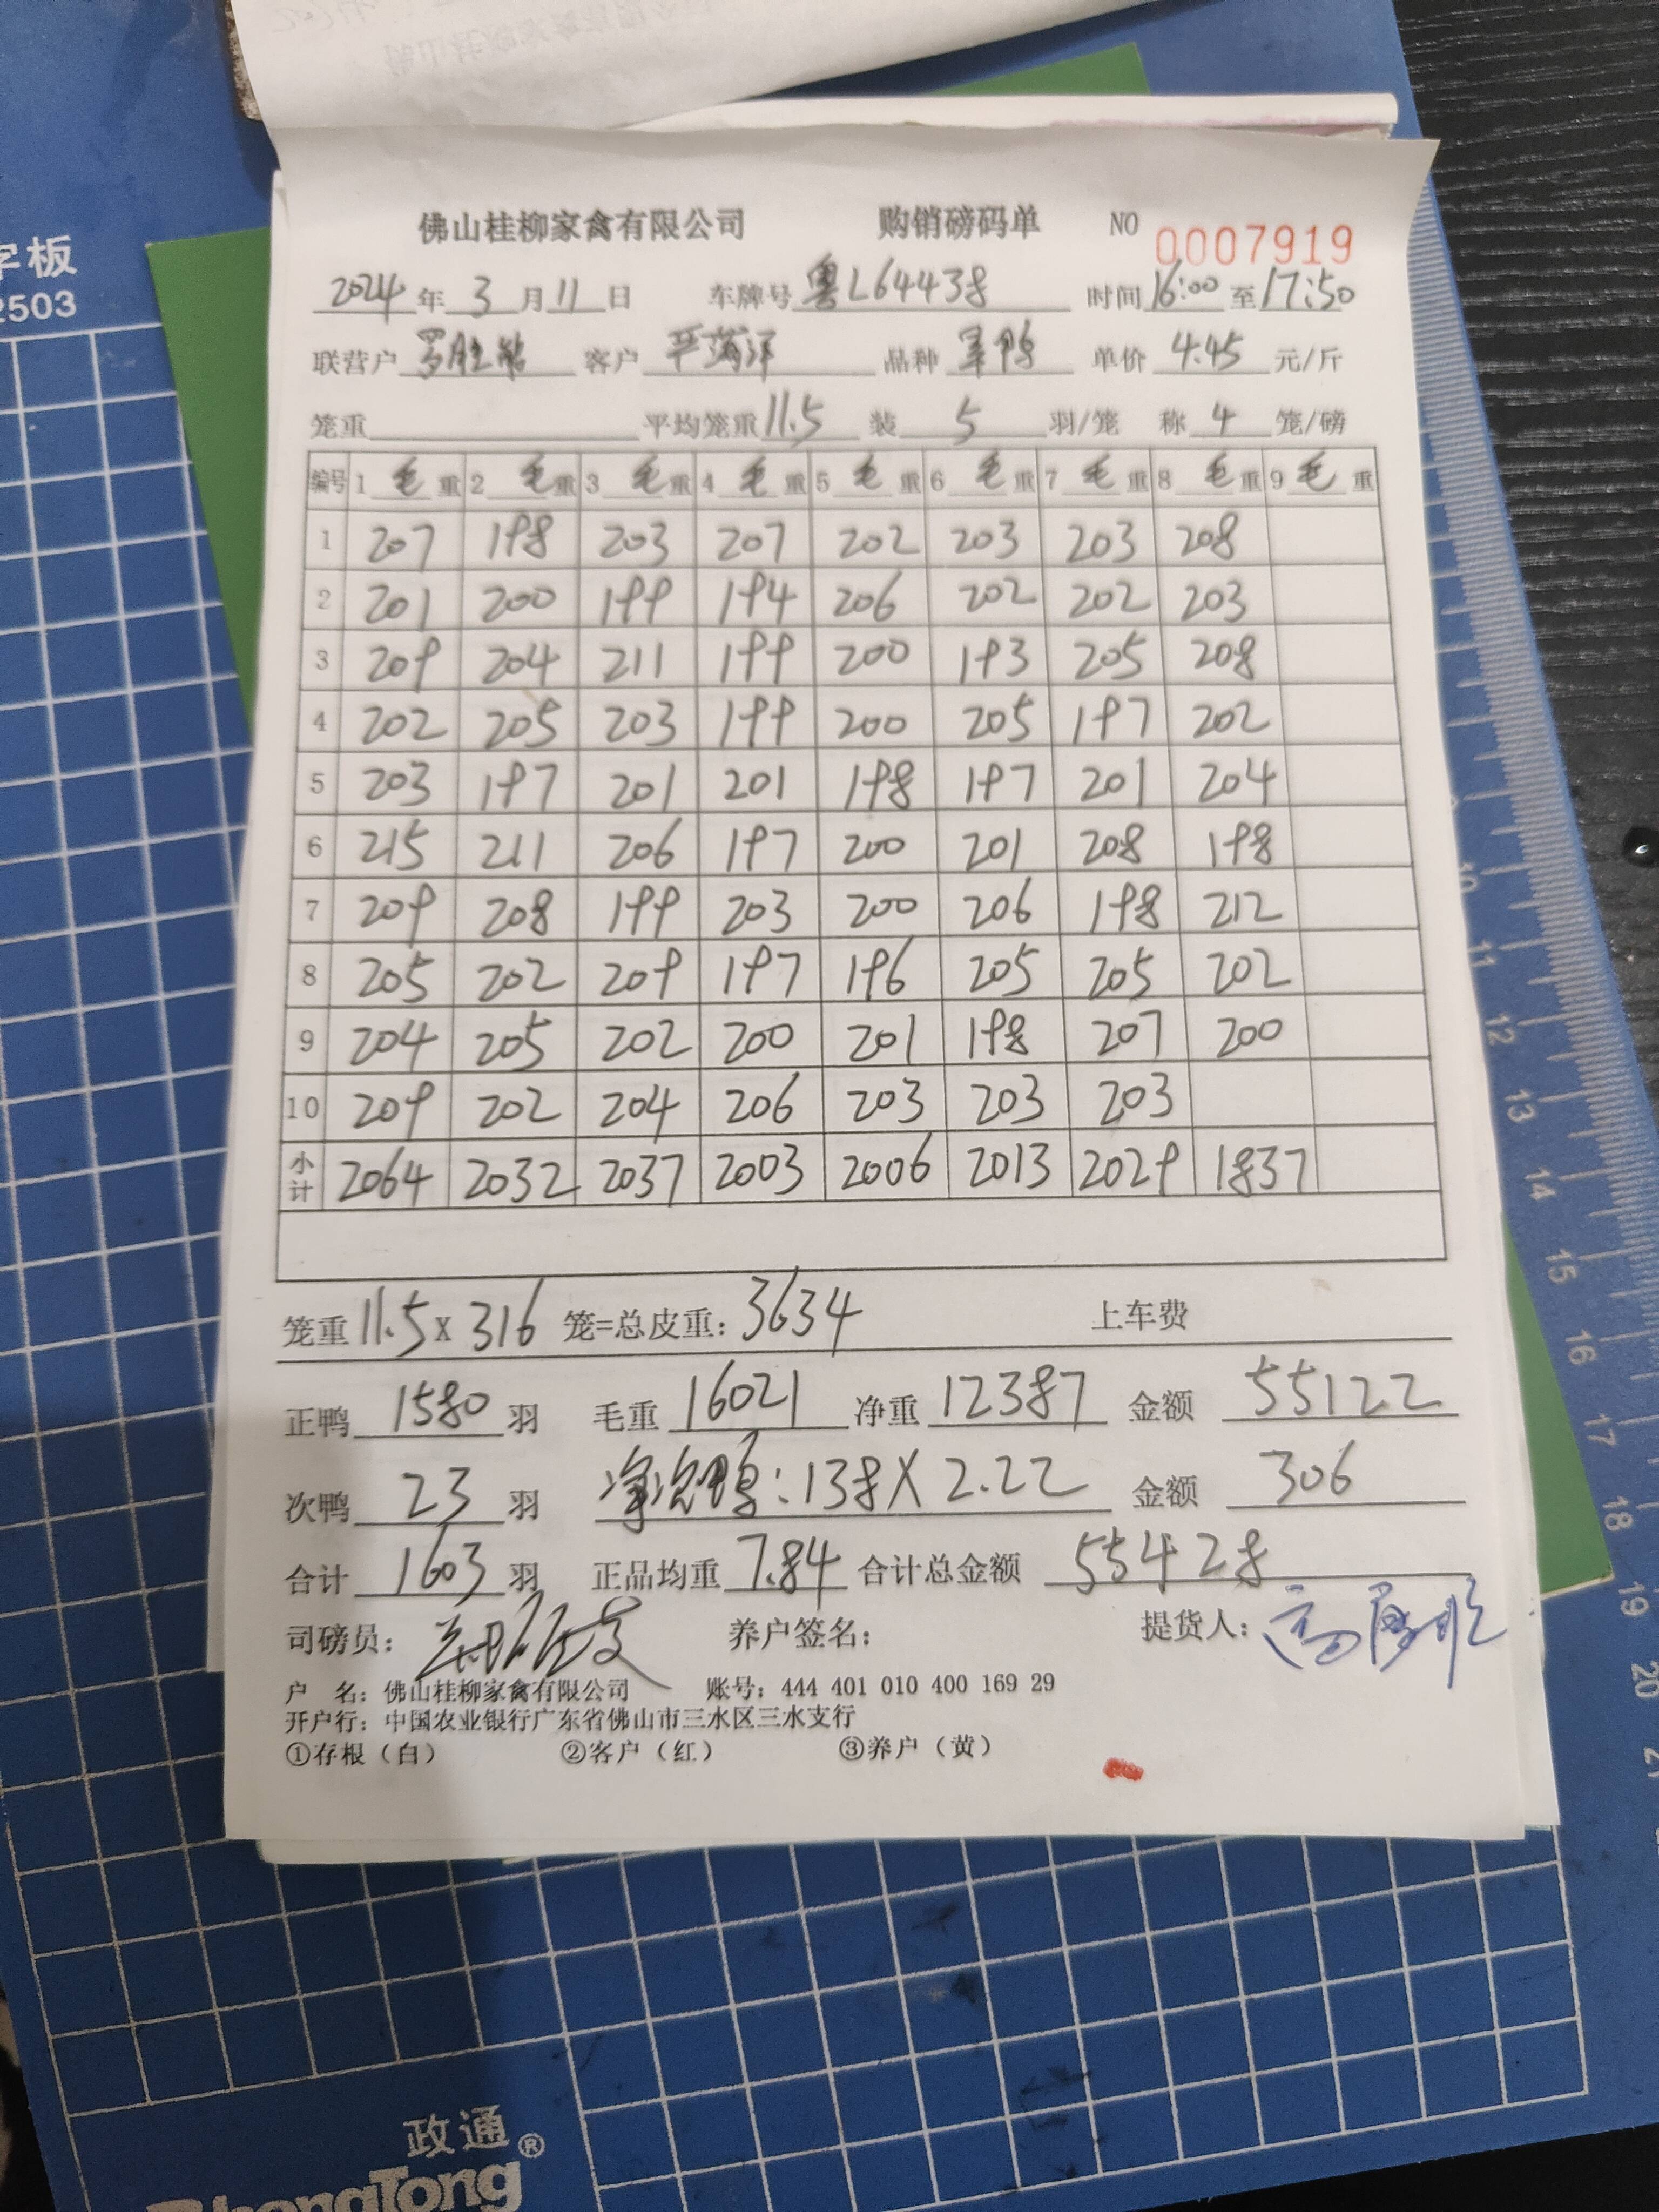 字板
2503
佛山桂柳家禽有限公司 购销磅码单 NO 0007919
2024年 3月11日 车牌号 粤L64438 时间16:00至17:50
联营户 客户 品种 单价 4.45 元/斤
笼重 平均笼重11.5 装 5 羽/笼 称 4 笼/磅
编号 1 毛重 2 毛重 3 毛重 4 毛重 5 毛重 6 毛重 7 毛重 8 毛重 9 毛重
1 207 198 203 207 202 203 203 208
2 201 200 199 194 206 202 202 203
3 209 204 211 199 200 193 205 208
4 202 205 203 199 200 205 197 202
5 203 197 201 201 198 197 201 204
6 215 211 206 197 200 201 208 198
7 209 208 199 203 200 206 198 212
8 205 202 209 197 196 205 205 202
9 204 205 202 200 201 198 207 200
10 209 202 204 206 203 203 203
小计 2064 2032 2037 2003 2006 2013 2029 1837
笼重 11.5 x 316 笼=总皮重: 3634 上车费
正鸭 1580 羽 毛重 16021 净重 12387 金额 55122
次鸭 23 羽 净次鸭: 138 X 2.22 金额 306
合计 1603 羽 正品均重 7.84 合计总金额 55428
司磅员: 养户签名: 提货人:
户 名: 佛山桂柳家禽有限公司 账号: 444 401 010 400 169 29
开户行: 中国农业银行广东省佛山市三水区三水支行
①存根（白） ②客户（红） ③养户（黄）
10
11
12
13
14
15
16
17
18
19
20
政通®
ZhengTong